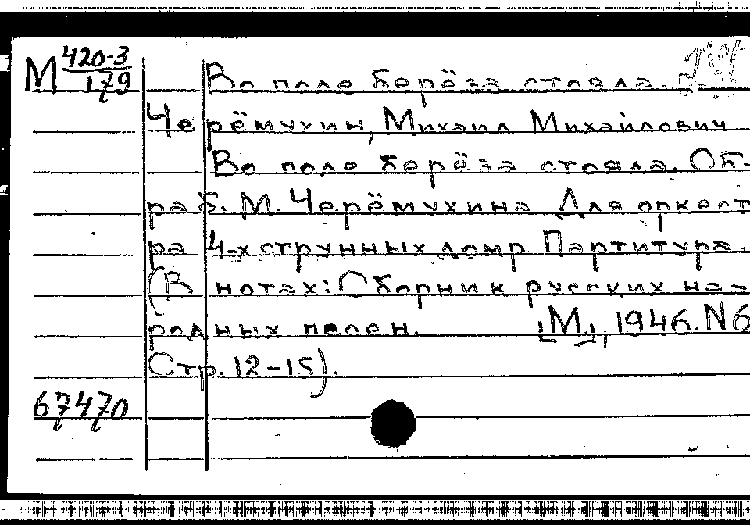 М 420-3
179
Во поле берёза стояла.
Черёмухин, Михаил Михайлович
Во поле берёза стояла. Об-
раб. М. Черёмухина Для оркест
ра 4-х струнных домр Партитура.
(В нотах: Сборник русских на-
родных песен. [М.], 1946. N6
Стр. 12-15).
67470